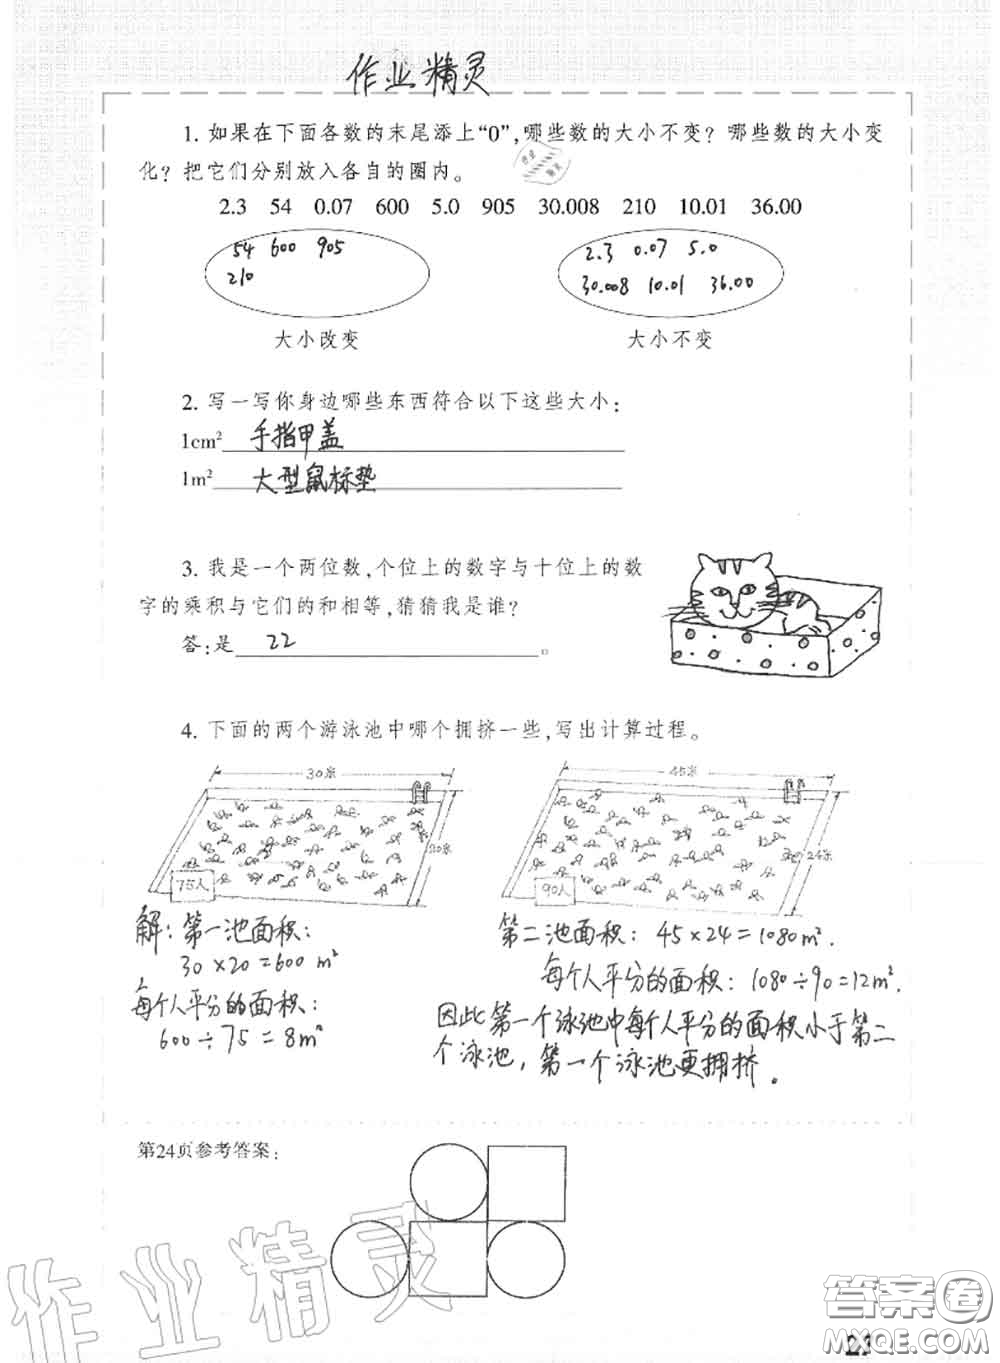 作业精灵
1. 如果在下面各数的末尾添上“0”,哪些数的大小不变？哪些数的大小变
化？把它们分别放入各自的圈内。
2.3 54 0.07 600 5.0 905 30.008 210 10.01 36.00
54 600 905
210
2.3 0.07 5.0
30.008 10.01 36.00
大小改变
大小不变
2. 写一写你身边哪些东西符合以下这些大小：
1cm² 手指甲盖
1m² 大型鼠标垫
3. 我是一个两位数,个位上的数字与十位上的数
字的乘积与它们的和相等,猜猜我是谁？
答:是 22 。
4. 下面的两个游泳池中哪个拥挤一些,写出计算过程。
30米
20米
75人
45米
24米
90人
解：第一池面积：
30×20=600 m²
每个人平分的面积：
600÷75=8m²
第二池面积：45×24=1080m².
每个人平分的面积：1080÷90=12m².
因此第一个泳池中每个人平分的面积小于第二
个泳池，第一个泳池更拥挤。
第24页参考答案：
作业精灵
答案圈
MXQE.COM